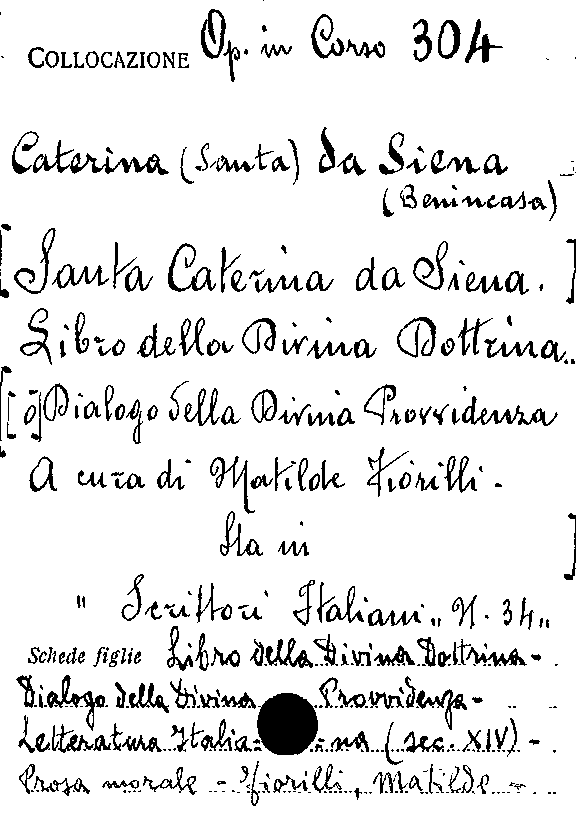 COLLOCAZIONE Op. in Corso 304
Caterina (Santa) da Siena
(Benincasa)
[Santa Caterina da Siena.]
Libro della Divina Dottrina..
[[ō] Dialogo della Divina Provvidenza
A cura di Matilde Fiorilli -
Sta in ]
" Scrittori Italiani „ N. 34 „
Schede figlie Libro della Divina Dottrina -
Dialogo della Divina Provvidenza -
Letteratura Italia- -na (sec. XIV) -
Prosa morale - Fiorilli, Matilde -